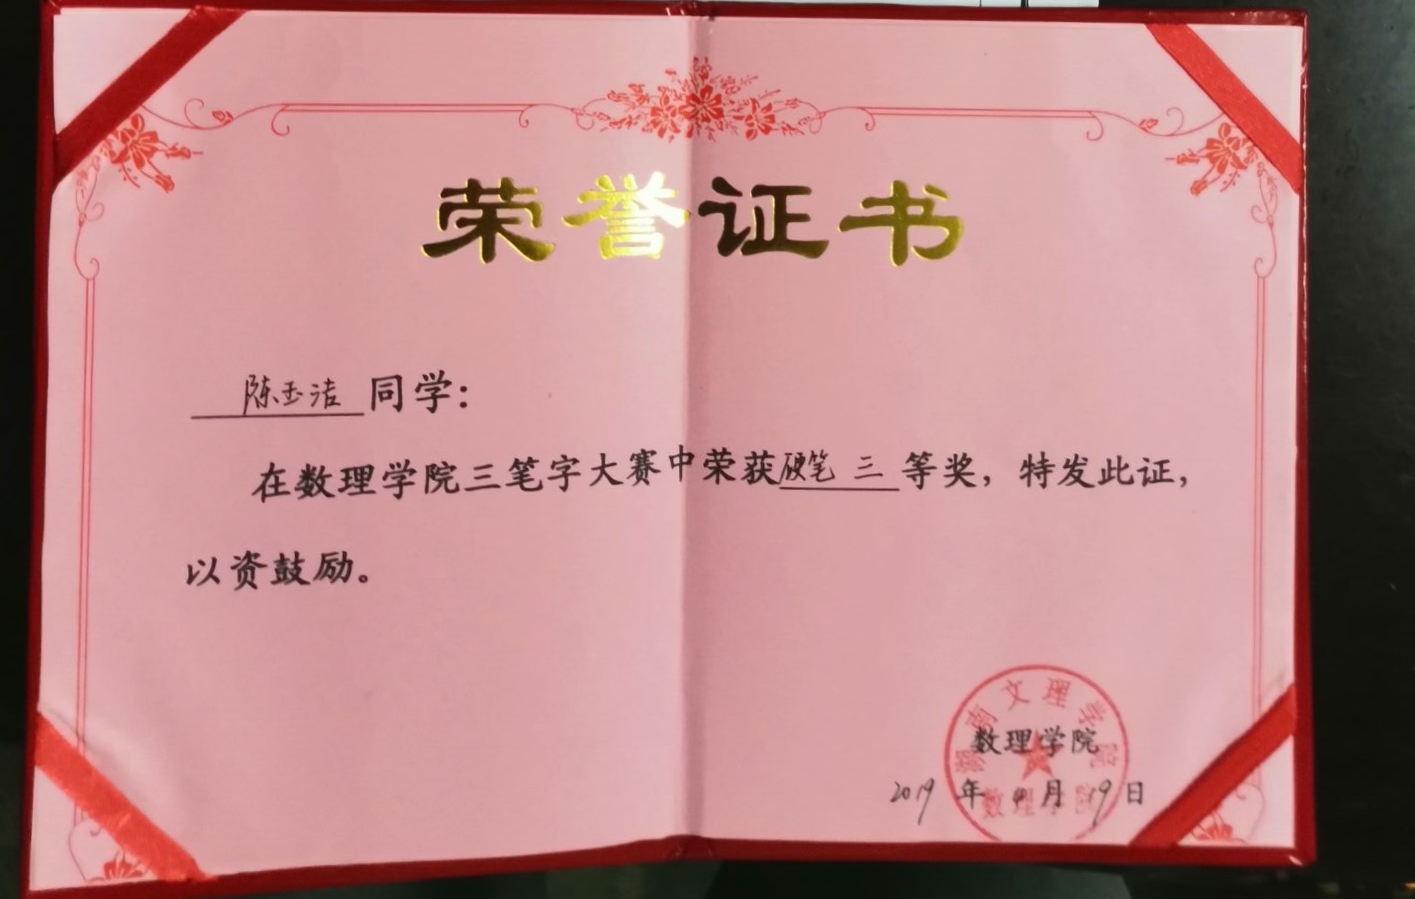 荣誉证书
陈玉洁同学：
在数理学院三笔字大赛中荣获硬笔 三等奖，特发此证，
以资鼓励。
湖南文理学院
数理学院
2019年 月19日
数理学院